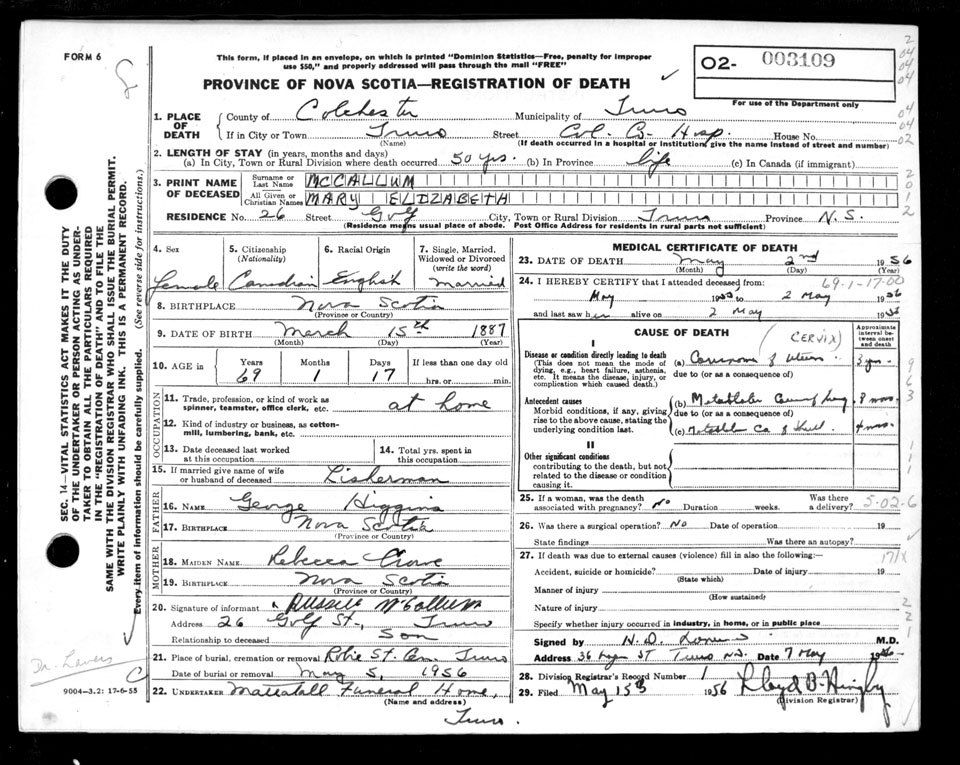 FORM 6
This form, if placed in an envelope, on which is printed "Dominion Statistics—Free, penalty for improper
use $50," and properly addressed will pass through the mail "FREE"
PROVINCE OF NOVA SCOTIA—REGISTRATION OF DEATH
02- 003109
For use of the Department only
1. PLACE OF DEATH
County of Colchester Municipality of Truro
If in City or Town Truro Street Col. Co. Hosp. House No.
(Name) (If death occurred in a hospital or institution, give the name instead of street and number)
2. LENGTH OF STAY (in years, months and days)
(a) In City, Town or Rural Division where death occurred 50 yrs. (b) In Province life (c) In Canada (if immigrant)
3. PRINT NAME OF DECEASED
Surname or Last Name MCCALLUM
All Given or Christian Names MARY ELIZABETH
RESIDENCE No. 26 Street Golf City, Town or Rural Division Truro Province N.S.
(Residence means usual place of abode. Post Office Address for residents in rural parts not sufficient)
4. Sex
Female
5. Citizenship (Nationality)
Canadian
6. Racial Origin
English
7. Single, Married, Widowed or Divorced (write the word)
married
8. BIRTHPLACE Nova Scotia
(Province or Country)
9. DATE OF BIRTH March 15th 1887
(Month) (Day) (Year)
10. AGE in Years Months Days If less than one day old
69 1 17 hrs. or min.
OCCUPATION
11. Trade, profession, or kind of work as spinner, teamster, office clerk, etc. at home
12. Kind of industry or business, as cotton-mill, lumbering, bank, etc.
13. Date deceased last worked at this occupation
14. Total yrs. spent in this occupation
15. If married give name of wife or husband of deceased Lisherman
FATHER
16. NAME George Higgins
17. BIRTHPLACE Nova Scotia
(Province or Country)
MOTHER
18. MAIDEN NAME Rebecca Crowe
19. BIRTHPLACE Nova Scotia
(Province or Country)
20. Signature of informant Russell McCallum
Address 26 Golf St., Truro
Relationship to deceased Son
21. Place of burial, cremation or removal Robie St. Cem. Truro
Date of burial or removal May 5, 1956
22. UNDERTAKER Mattatall Funeral Home,
(Name and address)
Truro.
MEDICAL CERTIFICATE OF DEATH
23. DATE OF DEATH May 2nd 1956
(Month) (Day) (Year)
24. I HEREBY CERTIFY that I attended deceased from:
69-1-17-00
May to 2 May 1956
and last saw her alive on 2 May 19
CAUSE OF DEATH
(CERVIX)
Approximate interval between onset and death
I
Disease or condition directly leading to death
(This does not mean the mode of dying, e.g., heart failure, asthenia, etc. It means the disease, injury, or complication which caused death.)
(a) Carcinoma of uterus 3 yrs.
due to (or as a consequence of)
Antecedent causes
Morbid conditions, if any, giving rise to the above cause, stating the underlying condition last.
(b) Metastatic lung 8 mos.
due to (or as a consequence of)
(c) Ca of mos.
II
Other significant conditions
contributing to the death, but not related to the disease or condition causing it.
25. If a woman, was the death associated with pregnancy? No Duration weeks. Was there a delivery?
5-02-6
26. Was there a surgical operation? No Date of operation 19
State findings Was there an autopsy?
27. If death was due to external causes (violence) fill in also the following:—
171X
Accident, suicide or homicide? Date of injury 19
(State which)
Manner of injury
(How sustained)
Nature of injury
Specify whether injury occurred in industry, in home, or in public place
Signed by H. D. M.D.
Address 36 St Truro N.S. Date 7 May 19
28. Division Registrar's Record Number 1
29. Filed May 15th 1956 Lloyd B.
(Division Registrar)
SEC. 14—VITAL STATISTICS ACT MAKES IT THE DUTY
OF THE UNDERTAKER OR PERSON ACTING AS UNDER-
TAKER TO OBTAIN ALL THE PARTICULARS REQUIRED
IN THE "REGISTRATION OF DEATH" AND TO FILE THE
SAME WITH THE DIVISION REGISTRAR WHO SHALL ISSUE THE BURIAL PERMIT.
WRITE PLAINLY WITH UNFADING INK. THIS IS A PERMANENT RECORD.
Every item of information should be carefully supplied. (See reverse side for instructions.)
Dr. Lavers
9004-3.2: 17-6-55